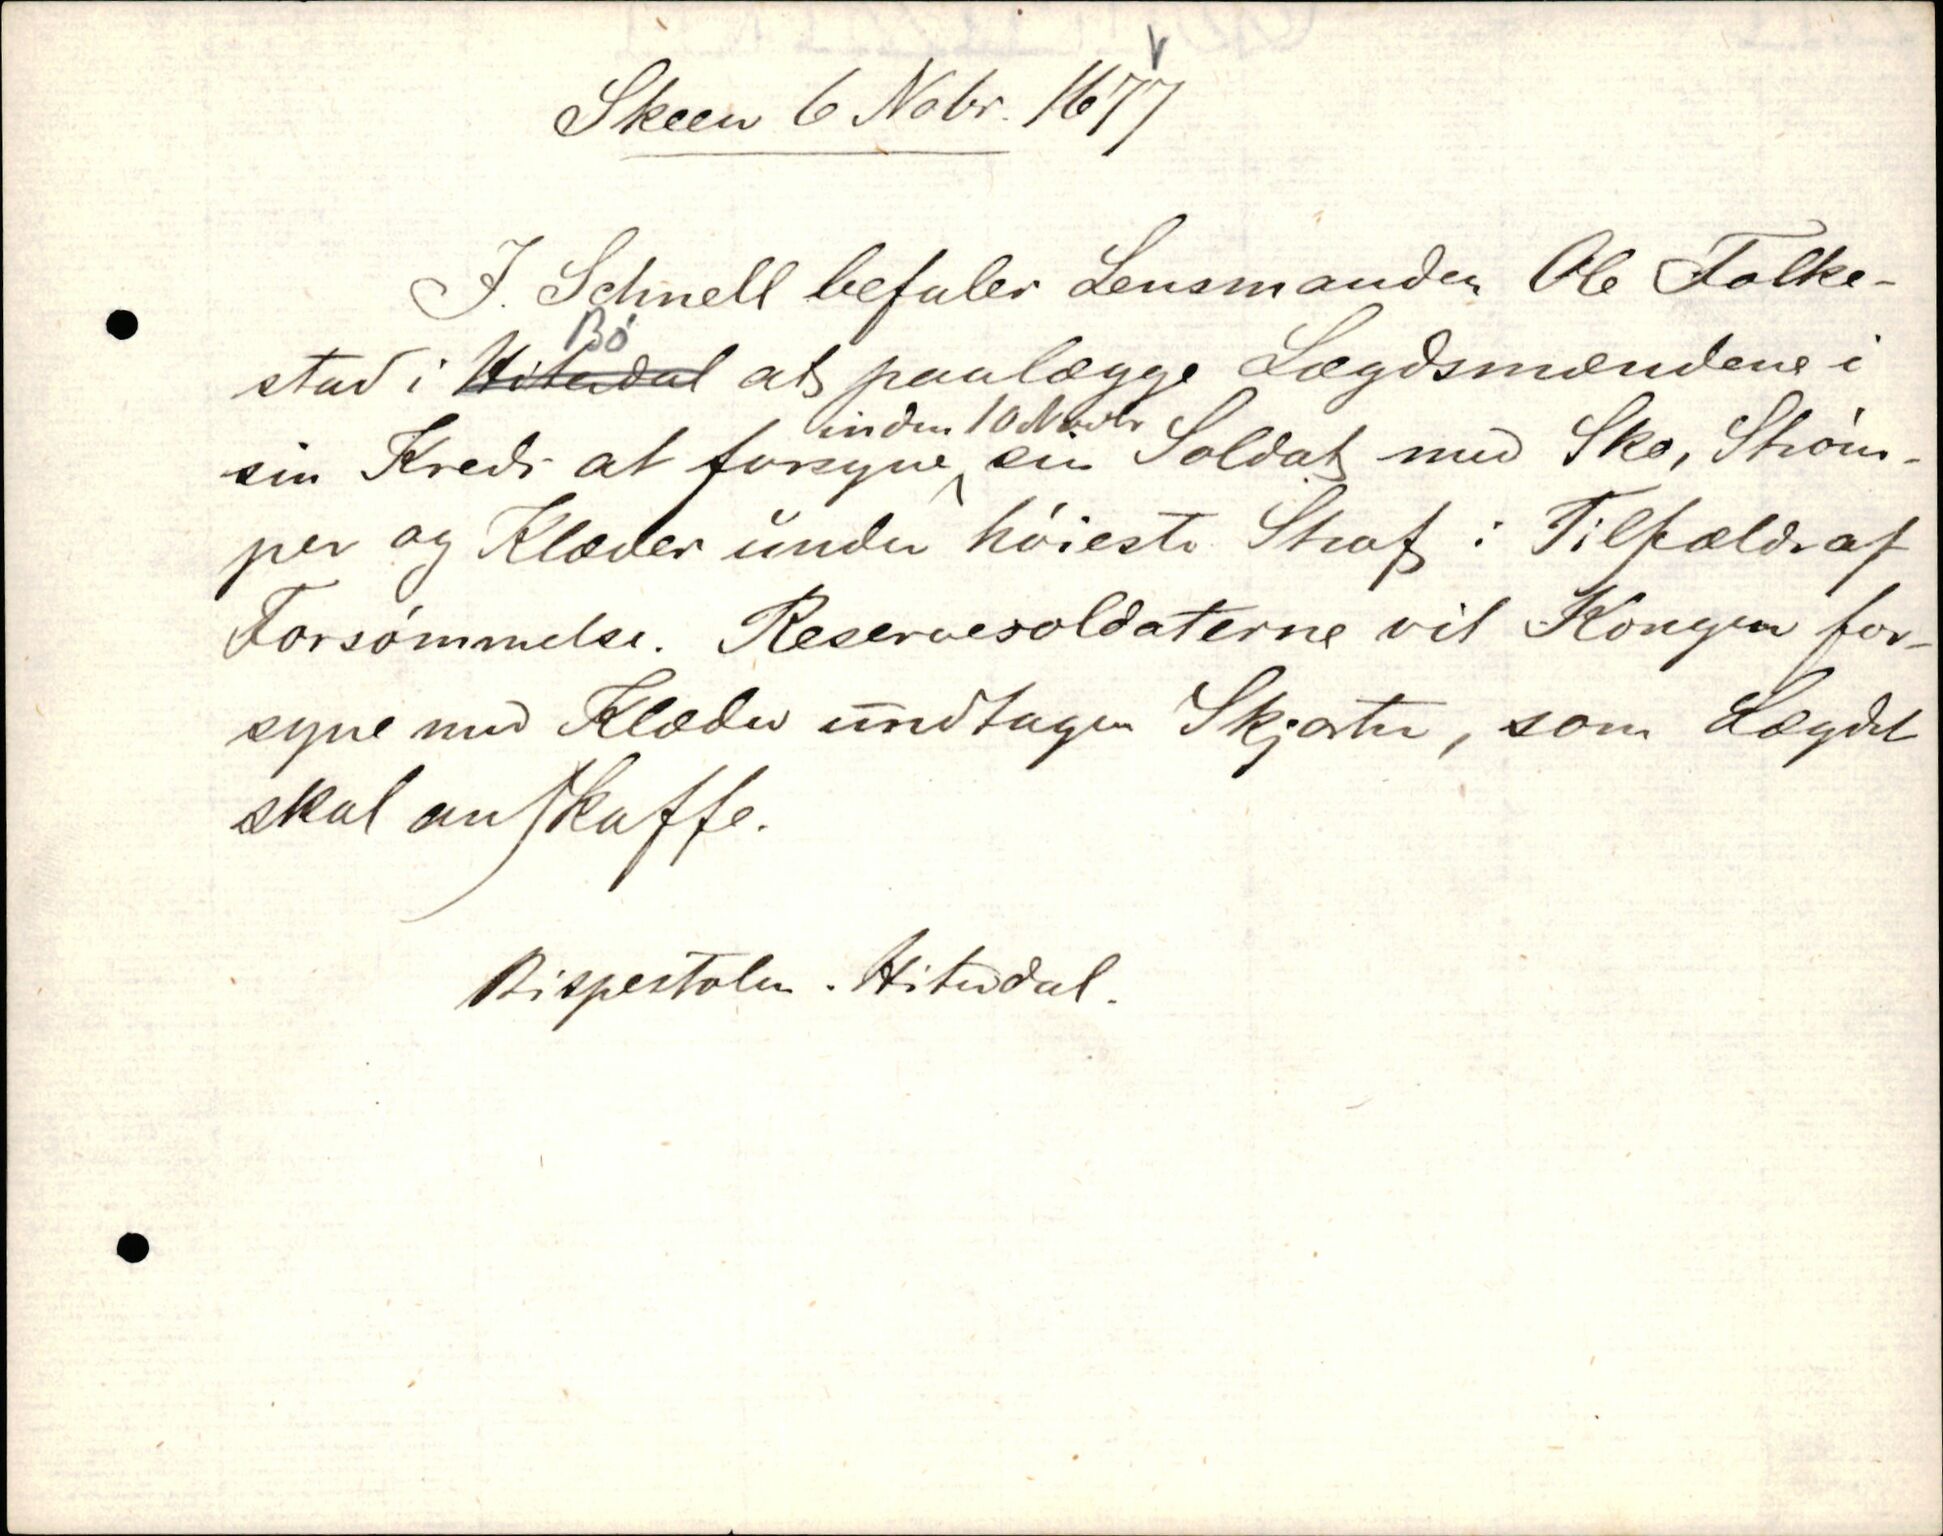 Skeen 6 Nobr. 1677
J. Schnell befaler Lensmanden Ole Folke-
stad i Hiterdal Bö at paalægge Lægdsmændene i
sin Kreds at forsyne inden 10 sin Soldat med Sko, Ström-
per og Klæder under höieste Straf i Tilfælde af
Forsömmelse. Reservesoldaterne vil Kongen for-
syne med Klæder undtagen Skjorter, som Lægdet
skal anskaffe.
Bispestolen. Hiterdal.